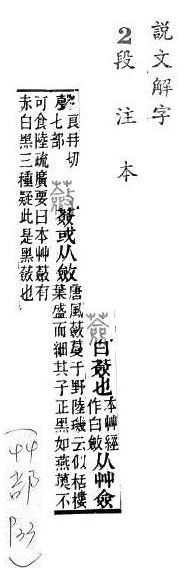 說文解字
2段注本
薟白薟也本艸經
作白蘞从艸僉
聲良冉切
七部蘞薟或从斂唐風蘞蔓于野陸璣云似栝樓
葉盛而細其子正黑如燕薁不
可食陸疏廣要曰本艸蘞有
赤白黑三種疑此是黑蘞也
(艸部P33)